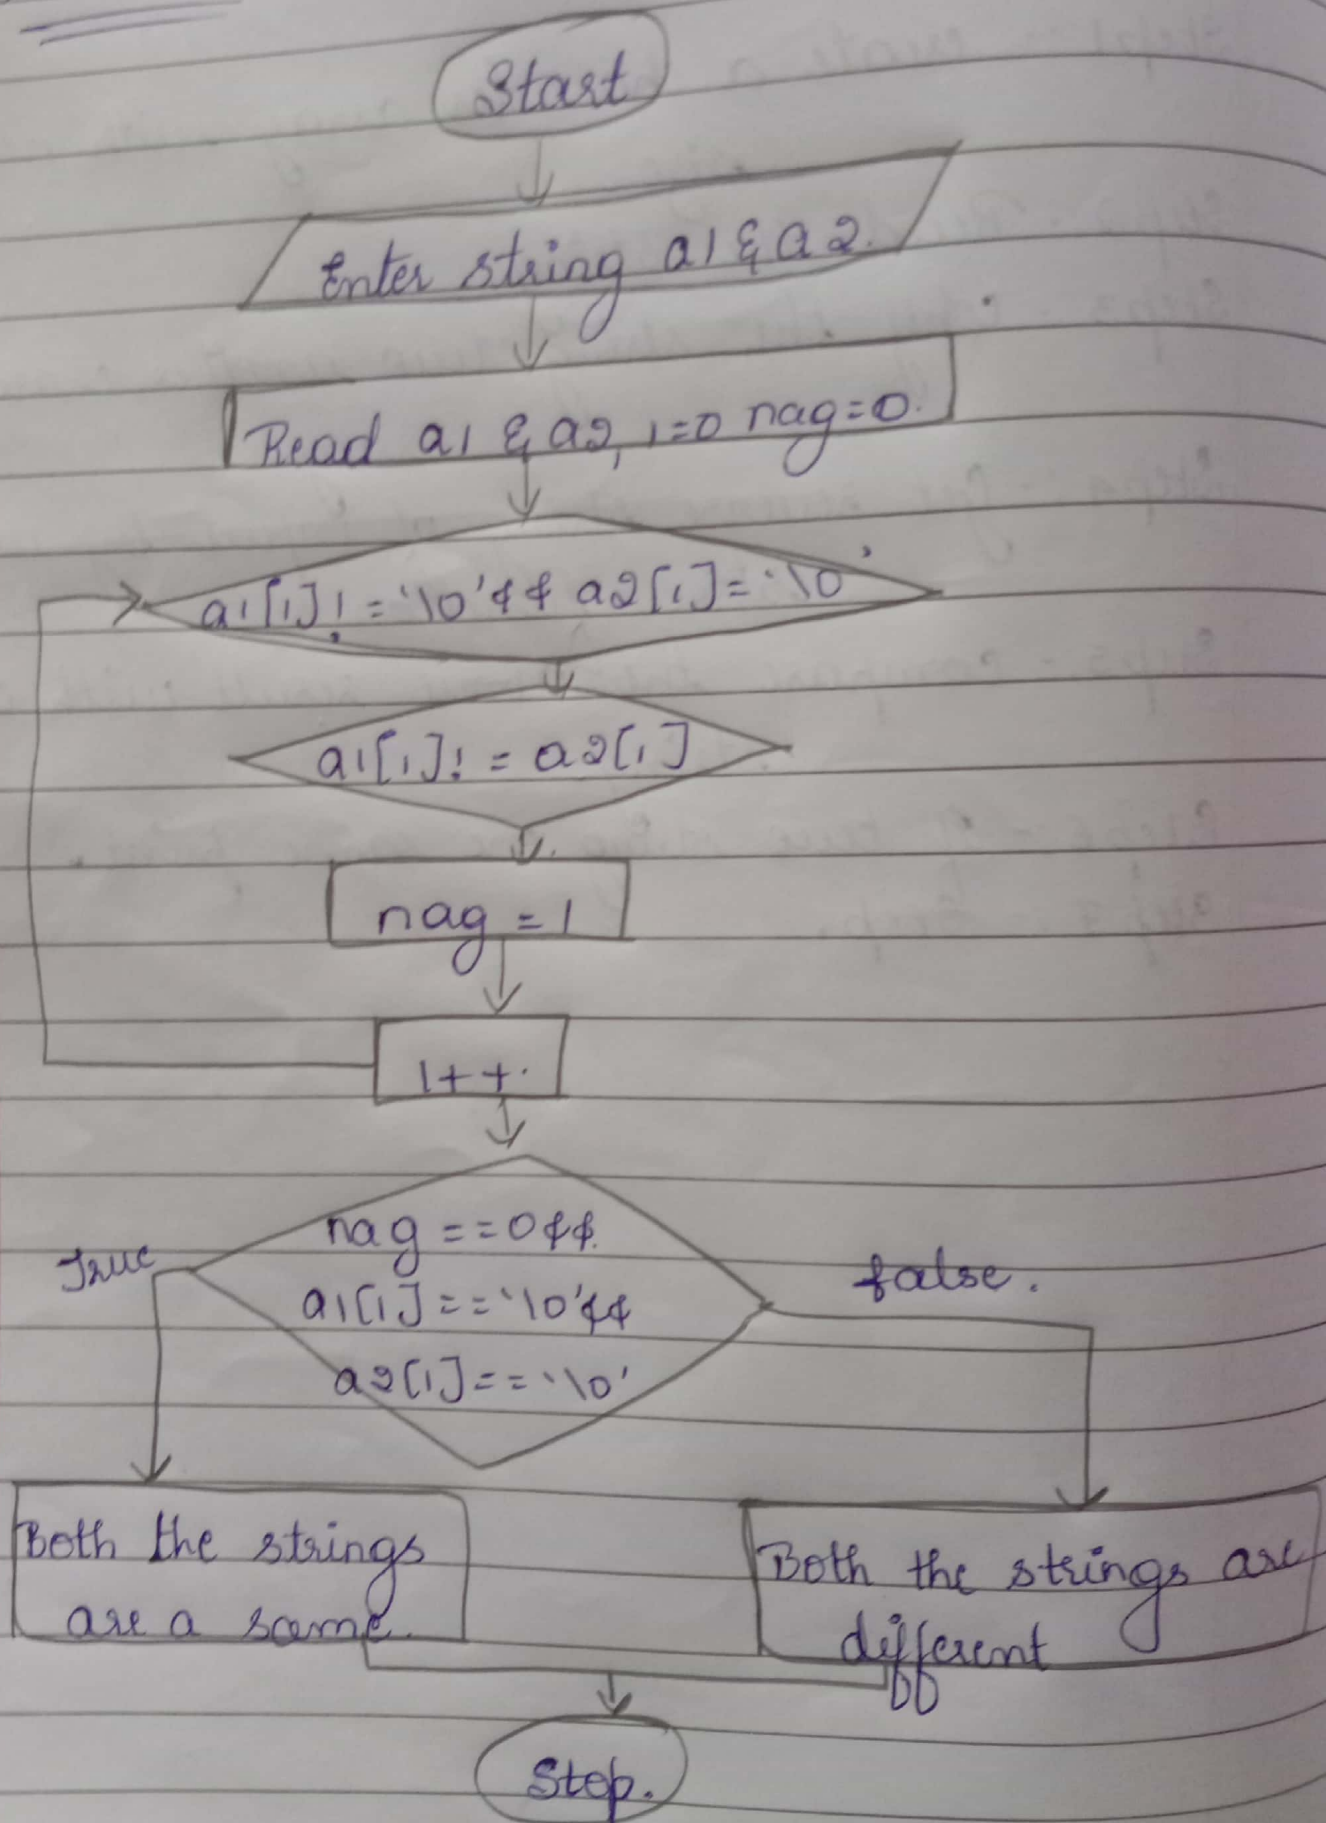 Start
Enter string a1 & a2.
Read a1 & a2, i=0 nag=0.
a1[i]!='\0'&& a2[i]='\0'
a1[i]!=a2[i]
nag=1
i++.
nag==0&&
True
false.
a1[i]=='\0'&&
a2[i]=='\0'
Both the strings
are a same.
Both the strings are
different
Stop.